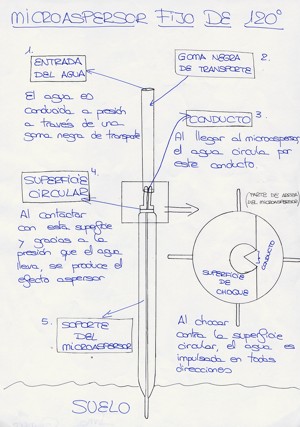 MICROASPERSOR FIJO DE 120º
1.
ENTRADA
DEL AGUA
El agua es
conducida a presión
a través de una
goma negra de transporte
GOMA NEGRA
DE TRANSPORTE
2.
CONDUCTO
3.
Al llegar al microaspersor,
el agua circula por
este conducto.
4.
SUPERFICIE
CIRCULAR
Al contactar
con esta superficie
y gracias a la
presión que el agua
lleva, se produce el
efecto aspersor
(PARTE DE
DEL MICROASPERSOR)
CONDUCTO
SUPERFICIE
DE
CHOQUE
5.
SOPORTE
DEL
MICROASPERSOR
Al chocar
contra la superficie
circular, el agua es
impulsada en todas
direcciones
SUELO